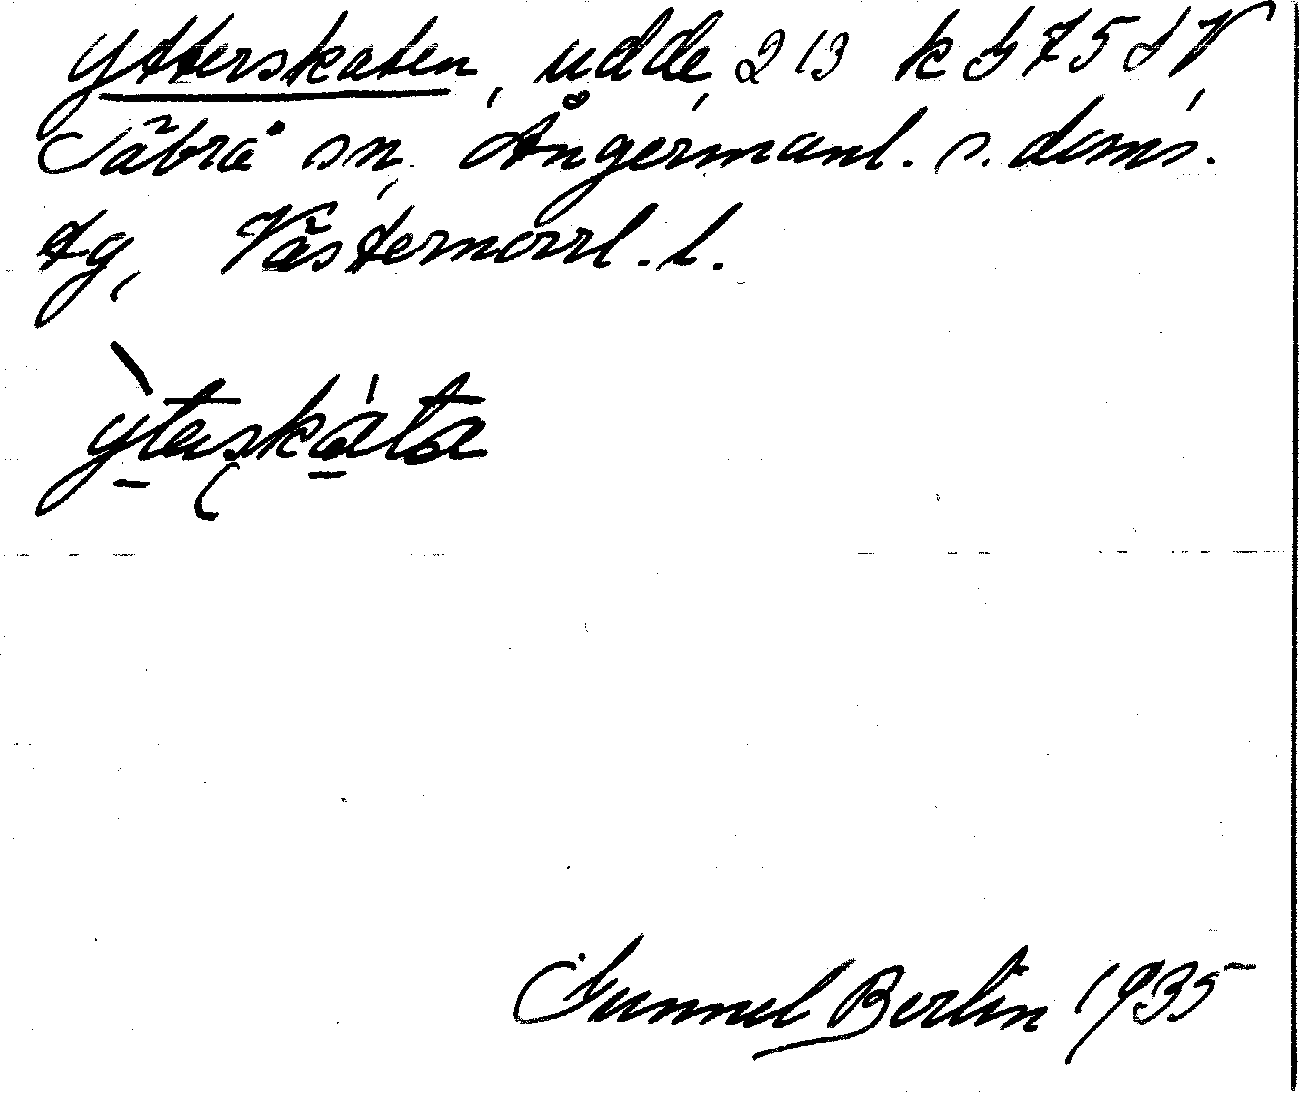 Ytterskaten, udde, 213 k b 75 d V
Säbrå sn, Ångermanl. s. doms.
tg, Västernorrl. l.
ỳtaskáta
Gunnel Berlin 1935